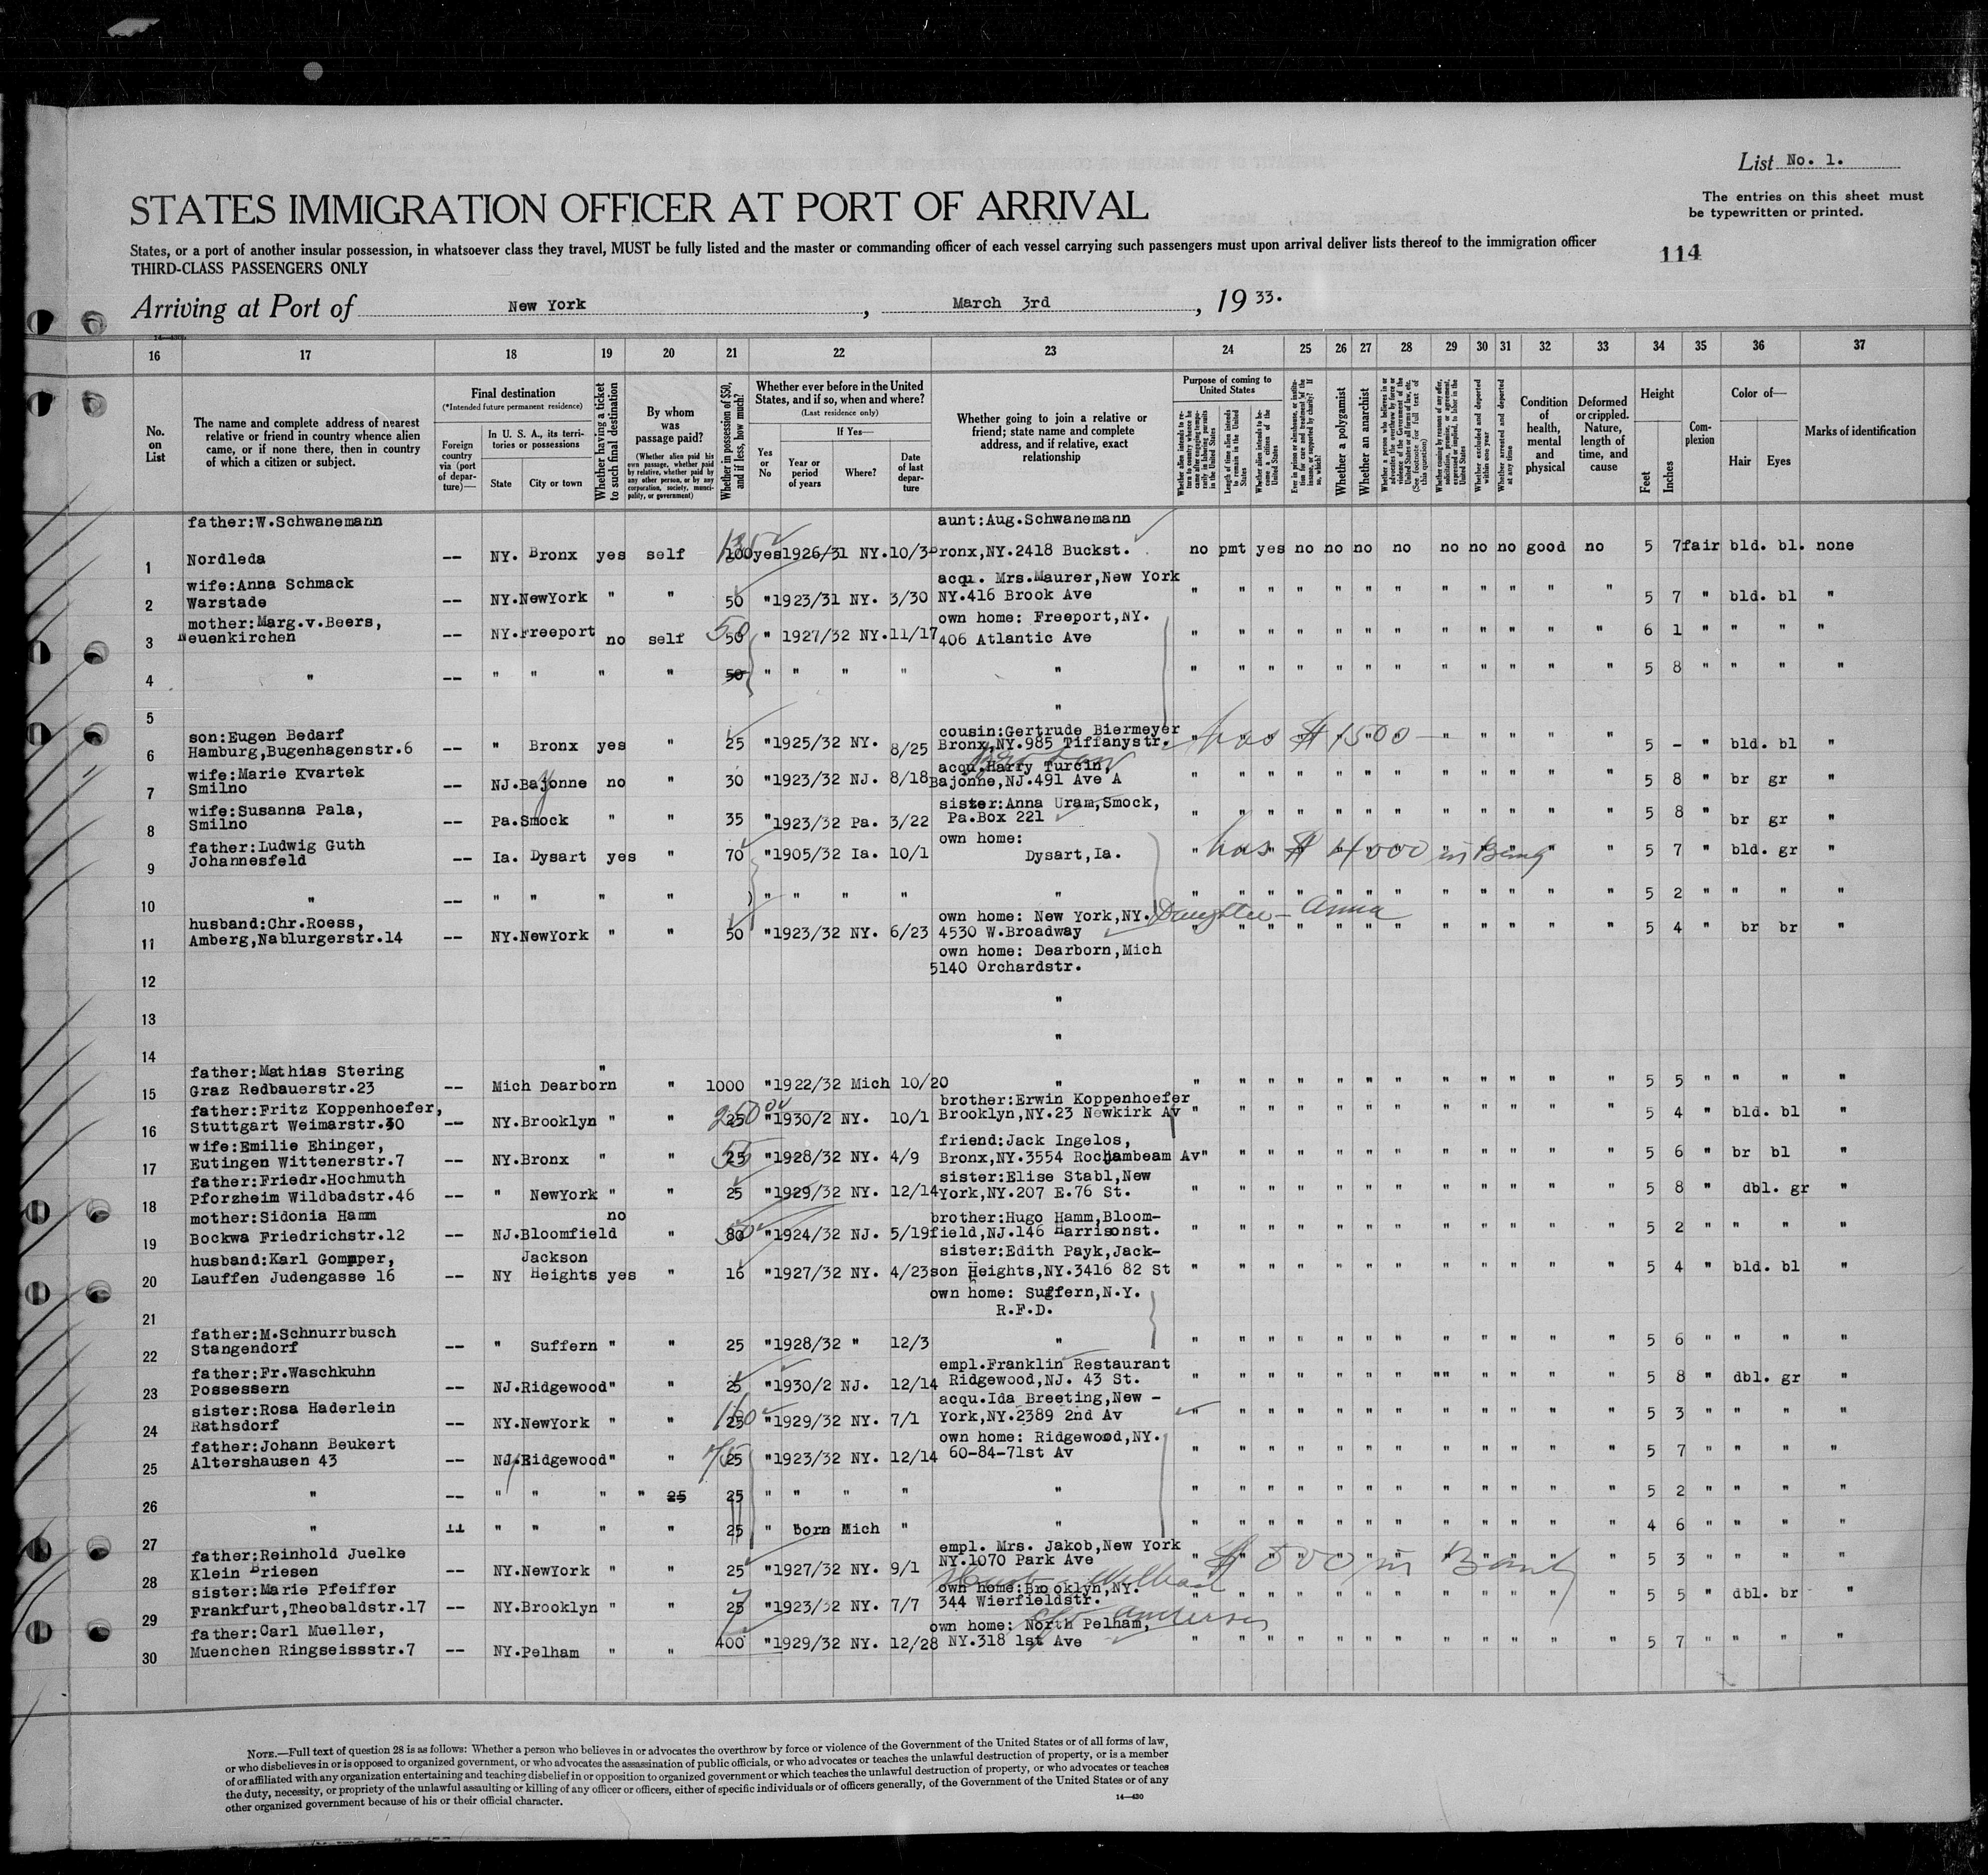 List No. 1.
The entries on this sheet must
be typewritten or printed.
STATES IMMIGRATION OFFICER AT PORT OF ARRIVAL
States, or a port of another insular possession, in whatsoever class they travel, MUST be fully listed and the master or commanding officer of each vessel carrying such passengers must upon arrival deliver lists thereof to the immigration officer
THIRD-CLASS PASSENGERS ONLY
114
Arriving at Port of New York, March 3rd, 19 33.
16 17 18 19 20 21 22 23 24 25 26 27 28 29 30 31 32 33 34 35 36 37
No. on List
The name and complete address of nearest relative or friend in country whence alien came, or if none there, then in country of which a citizen or subject.
Final destination
(*Intended future permanent residence)
Foreign country via (port of departure)—
In U. S. A., its territories or possessions
State
City or town
Whether having a ticket to such final destination
By whom was passage paid?
(Whether alien paid his own passage, whether paid by relative, whether paid by any other person, or by any corporation, society, municipality, or government)
Whether in possession of $50, and if less, how much?
Whether ever before in the United States, and if so, when and where?
(Last residence only)
Yes or No
If Yes—
Year or period of years
Where?
Date of last departure
Whether going to join a relative or friend; state name and complete address, and if relative, exact relationship
Purpose of coming to United States
Length of time alien intends to remain in the United States
Whether alien intends to become a citizen of the United States
Whether a polygamist
Whether an anarchist
Whether excluded and deported within one year
Whether arrested and deported at any time
Condition of health, mental and physical
Deformed or crippled. Nature, length of time, and cause
Height
Feet
Inches
Complexion
Color of—
Hair
Eyes
Marks of identification
father:W.Schwanemann aunt:Aug.Schwanemann
1 Nordleda -- NY. Bronx yes self 100 yes 1926/31 NY. 10/3 Bronx,NY.2418 Buckst. no pmt yes no no no no no no no good no 5 7 fair bld. bl. none
wife:Anna Schmack acqu. Mrs.Maurer,New York
2 Warstade -- NY.NewYork " " 50 "1923/31 NY. 3/30 NY.416 Brook Ave " " " " " " " " " " " " 5 7 " bld. bl "
mother:Marg.v.Beers, own home: Freeport,NY.
3 Neuenkirchen -- NY.Freeport no self 50 50 " 1927/32 NY.11/17 406 Atlantic Ave " " " " " " " " " " " " 6 1 " " " "
4 " -- " " " " 50 " " " " " " " " " " " " " " " " " " 5 8 " " " "
5 "
son:Eugen Bedarf cousin:Gertrude Biermeyer
6 Hamburg,Bugenhagenstr.6 -- " Bronx yes " 25 "1925/32 NY. 8/25 Bronx,NY.985 Tiffanystr. has $1500- 5 - " bld. bl "
wife:Marie Kvartek acqu.Harry Turcin,
7 Smilno -- NJ.Bajonne no " 30 "1923/32 NJ. 8/18 Bajonne,NJ.491 Ave A " " " " " " " " " " " " 5 8 " br gr "
wife:Susanna Pala, sister:Anna Uram,Smock,
8 Smilno -- Pa.Smock " " 35 "1923/32 Pa. 3/22 Pa.Box 221 " " " " " " " " " " " " 5 8 " br gr "
father:Ludwig Guth own home:
9 Johannesfeld -- Ia. Dysart yes " 70 "1905/32 Ia. 10/1 Dysart,Ia. has $ 4000 in 5 7 " bld. gr "
10 " -- " " " " " " " " " " " " " " " " " " " " " " 5 2 " " " "
husband:Chr.Roess, own home: New York,NY. Daughter - Anna
11 Amberg,Nablurgerstr.14 -- NY.NewYork " " 50 "1923/32 NY. 6/23 4530 W.Broadway " " " " " " " " " " " " 5 4 " br br "
own home: Dearborn,Mich
12 5140 Orchardstr.
13 "
14 "
father:Mathias Stering
15 Graz Redbauerstr.23 -- Mich Dearborn " " 1000 "1922/32 Mich 10/20 " " " " " " " " " " " " " 5 5 " " " "
father:Fritz Koppenhoefer, brother:Erwin Koppenhoefer
16 Stuttgart Weimarstr.30 -- NY.Brooklyn " " 25 "1930/2 NY. 10/1 Brooklyn,NY.23 Newkirk Av " " " " " " " " " " " " 5 4 " bld. bl "
wife:Emilie Ehinger, friend:Jack Ingelos,
17 Eutingen Wittenerstr.7 -- NY.Bronx " " 25 "1928/32 NY. 4/9 Bronx,NY.3554 Rochambeam Av " " " " " " " " " " " " 5 6 " br bl "
father:Friedr.Hochmuth sister:Elise Stabl,New
18 Pforzheim Wildbadstr.46 -- " NewYork " " 25 "1929/32 NY. 12/14 York,NY.207 E.76 St. " " " " " " " " " " " " 5 8 " dbl. gr "
mother:Sidonia Hamm no brother:Hugo Hamm,Bloom-
19 Bockwa Friedrichstr.12 -- NJ.Bloomfield " 80 "1924/32 NJ. 5/19 field,NJ.146 Harrisonst. " " " " " " " " " " " " 5 2 " " " "
husband:Karl Gommper, Jackson sister:Edith Payk,Jack-
20 Lauffen Judengasse 16 -- NY Heights yes " 16 "1927/32 NY. 4/23 son Heights,NY.3416 82 St " " " " " " " " " " " " 5 4 " bld. bl "
own home: Suffern,N.Y.
21 R.F.D.
father:M.Schnurrbusch
22 Stangendorf -- " Suffern " " 25 "1928/32 " 12/3 " " " " " " " " " " " " " 5 6 " " " "
father:Fr.Waschkuhn empl.Franklin Restaurant
23 Possessern -- NJ.Ridgewood" " 25 "1930/2 NJ. 12/14 Ridgewood,NJ. 43 St. " " " " " " " "" " " " " 5 8 " dbl. gr "
sister:Rosa Haderlein acqu.Ida Breeting,New -
24 Rathsdorf -- NY.NewYork " " 25 "1929/32 NY. 7/1 York,NY.2389 2nd Av " " " " " " " " " " " " 5 3 " " " "
father:Johann Beukert own home: Ridgewood,NY.
25 Altershausen 43 -- NJ.Ridgewood" " 25 "1923/32 NY. 12/14 60-84-71st Av " " " " " " " " " " " " 5 7 " " " "
26 " -- " " " " 25 25 " " " " " " " " " " " " " " " " " 5 2 " " " "
27 " -- " " " " 25 " Born Mich " " " " " " " " " " " " " " 4 6 " " " "
father:Reinhold Juelke empl. Mrs. Jakob,New York
28 Klein Briesen -- NY.NewYork " " 25 "1927/32 NY. 9/1 NY.1070 Park Ave in Bank 5 3 " " " "
sister:Marie Pfeiffer own home:Brooklyn,NY.
29 Frankfurt,Theobaldstr.17 -- NY.Brooklyn " " 25 "1923/32 NY. 7/7 344 Wierfieldstr. " " " " " " " " " " " " 5 5 " dbl. br "
father:Carl Mueller, own home: North Pelham,
30 Muenchen Ringseissstr.7 -- NY.Pelham " " 400 "1929/32 NY. 12/28 NY.318 1st Ave " " " " " " " " " " " " 5 7 " " " "
NOTE.—Full text of question 28 is as follows: Whether a person who believes in or advocates the overthrow by force or violence of the Government of the United States or of all forms of law,
or who disbelieves in or is opposed to organized government, or who advocates the assassination of public officials, or who advocates or teaches the unlawful destruction of property, or is a member
of or affiliated with any organization entertaining and teaching disbelief in or opposition to organized government or which teaches the unlawful destruction of property, or who advocates or teaches
the duty, necessity, or propriety of the unlawful assaulting or killing of any officer or officers, either of specific individuals or of officers generally, of the Government of the United States or of any
other organized government because of his or their official character.
14—430